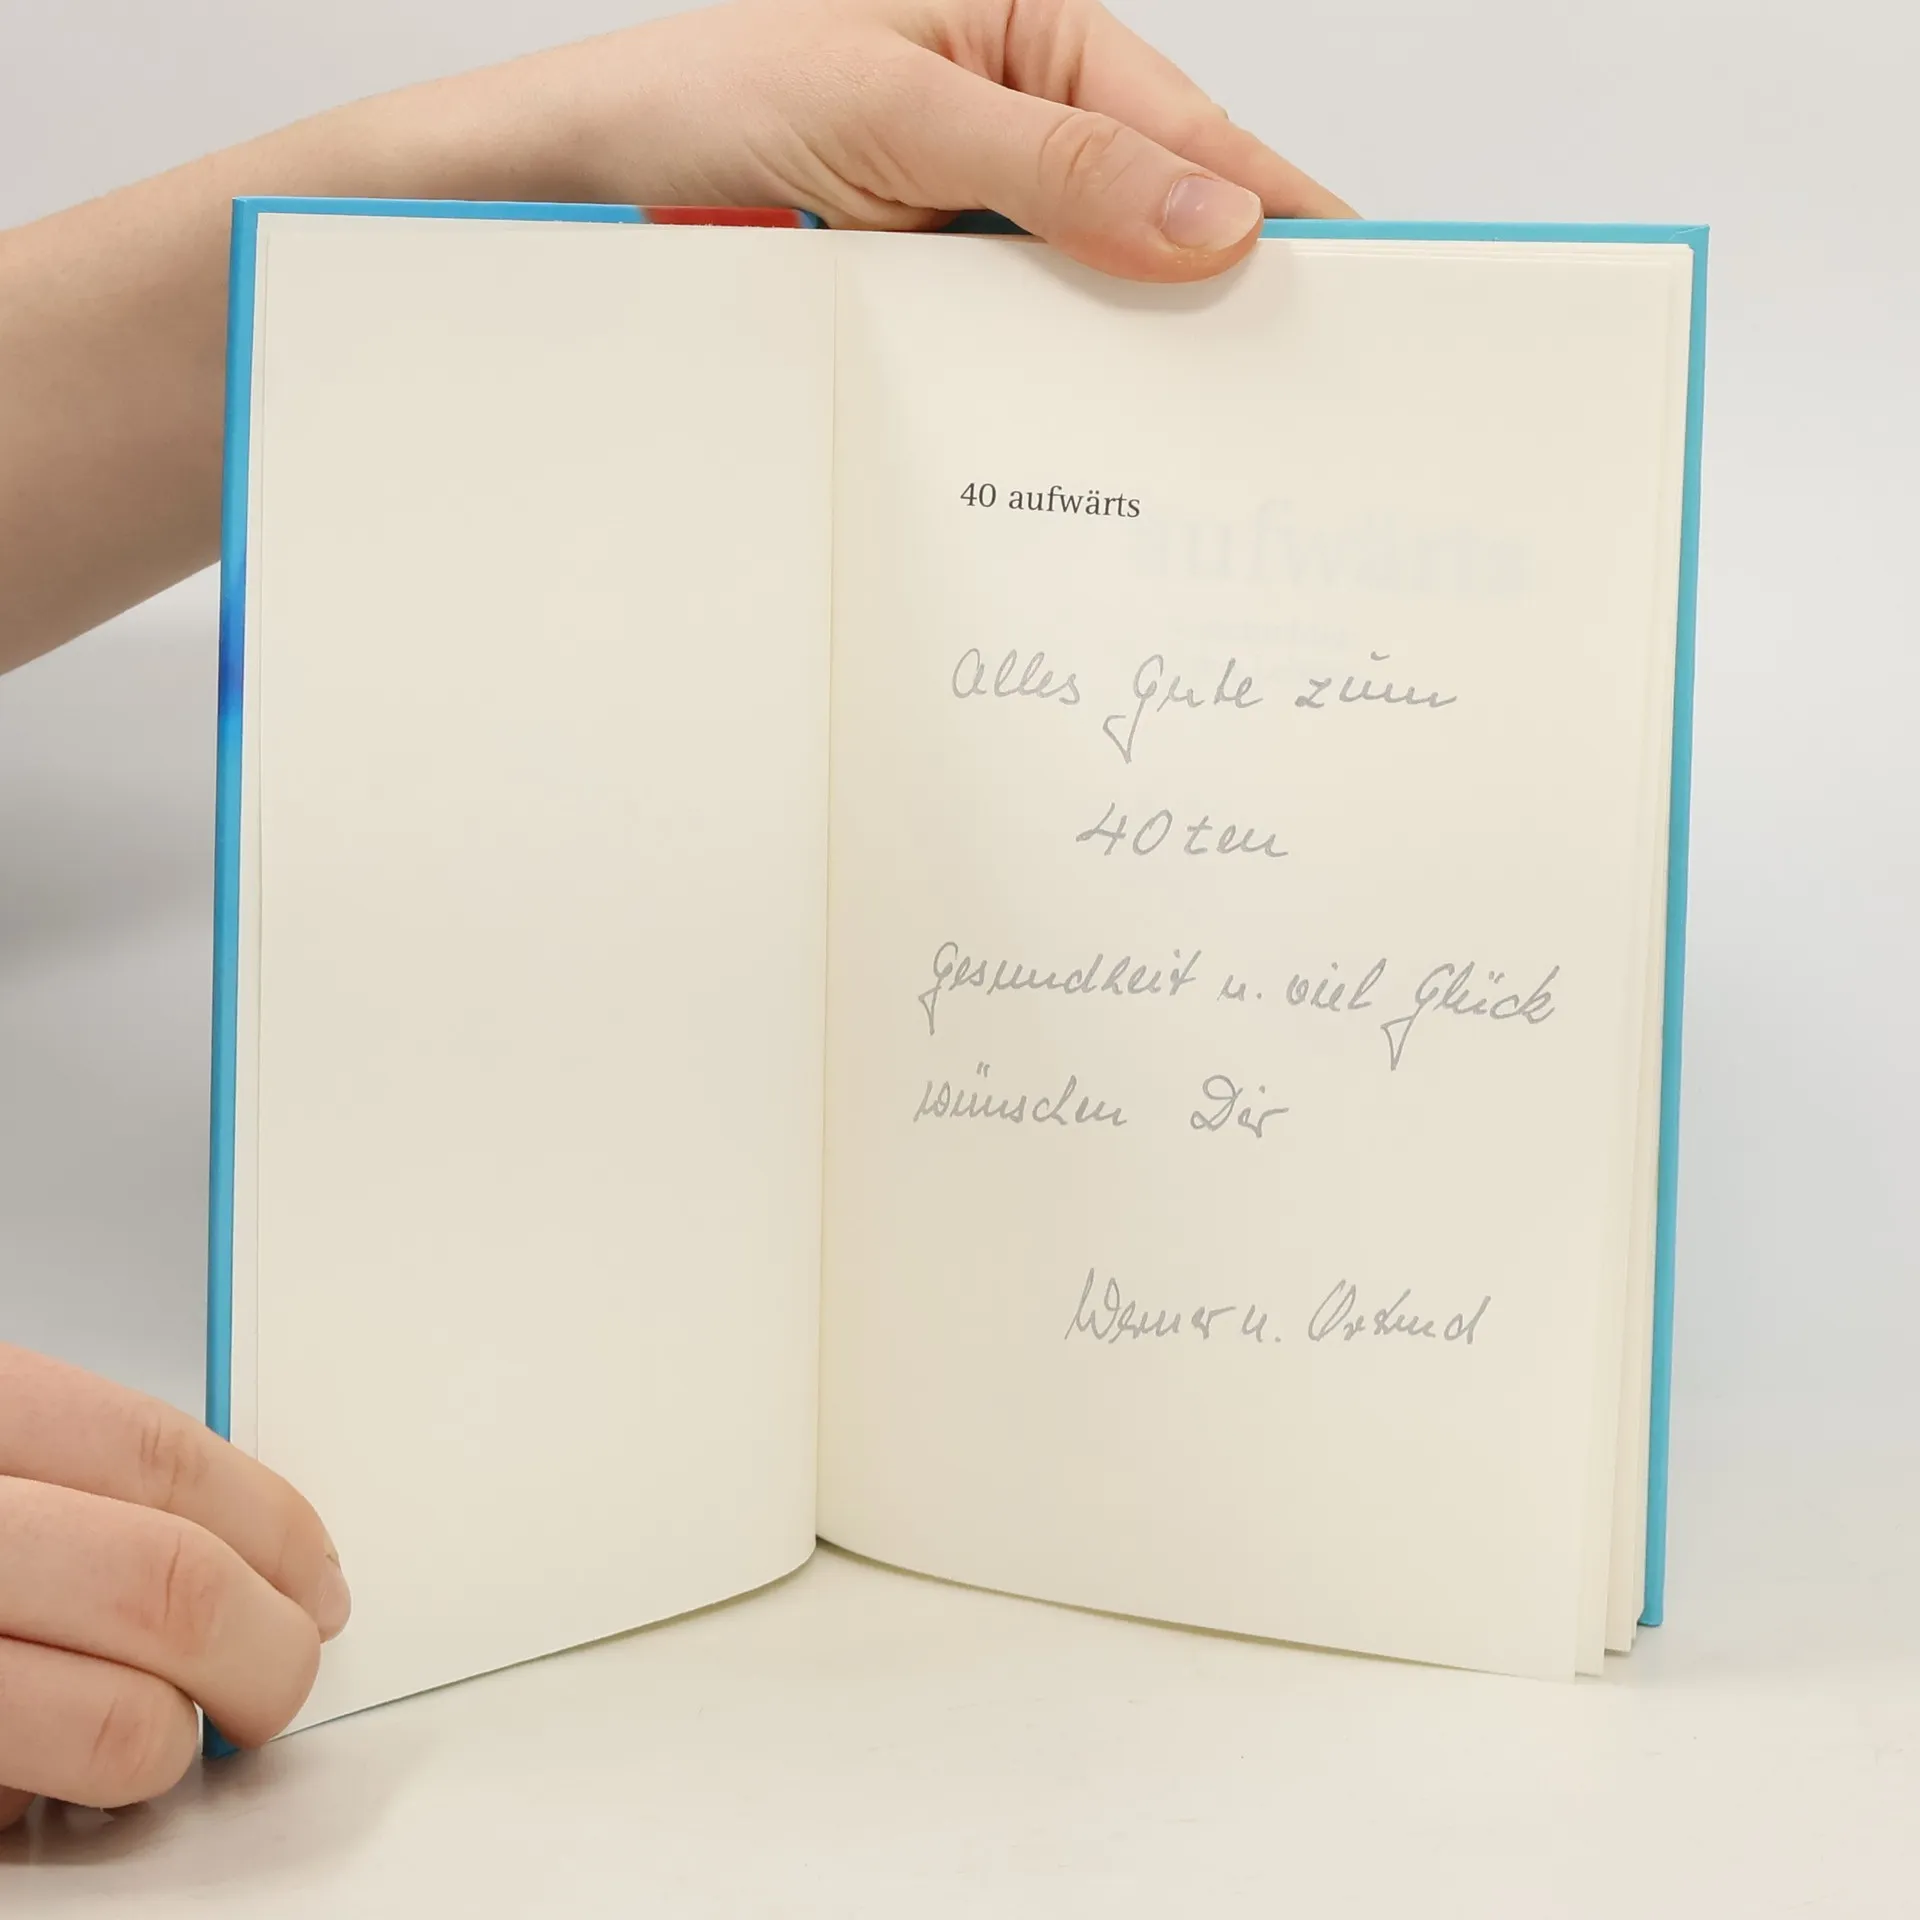 40 aufwärts
Alles Gute zum
40ten
Gesundheit u. viel Glück
wünschen Dir
Werner u. Ortrud